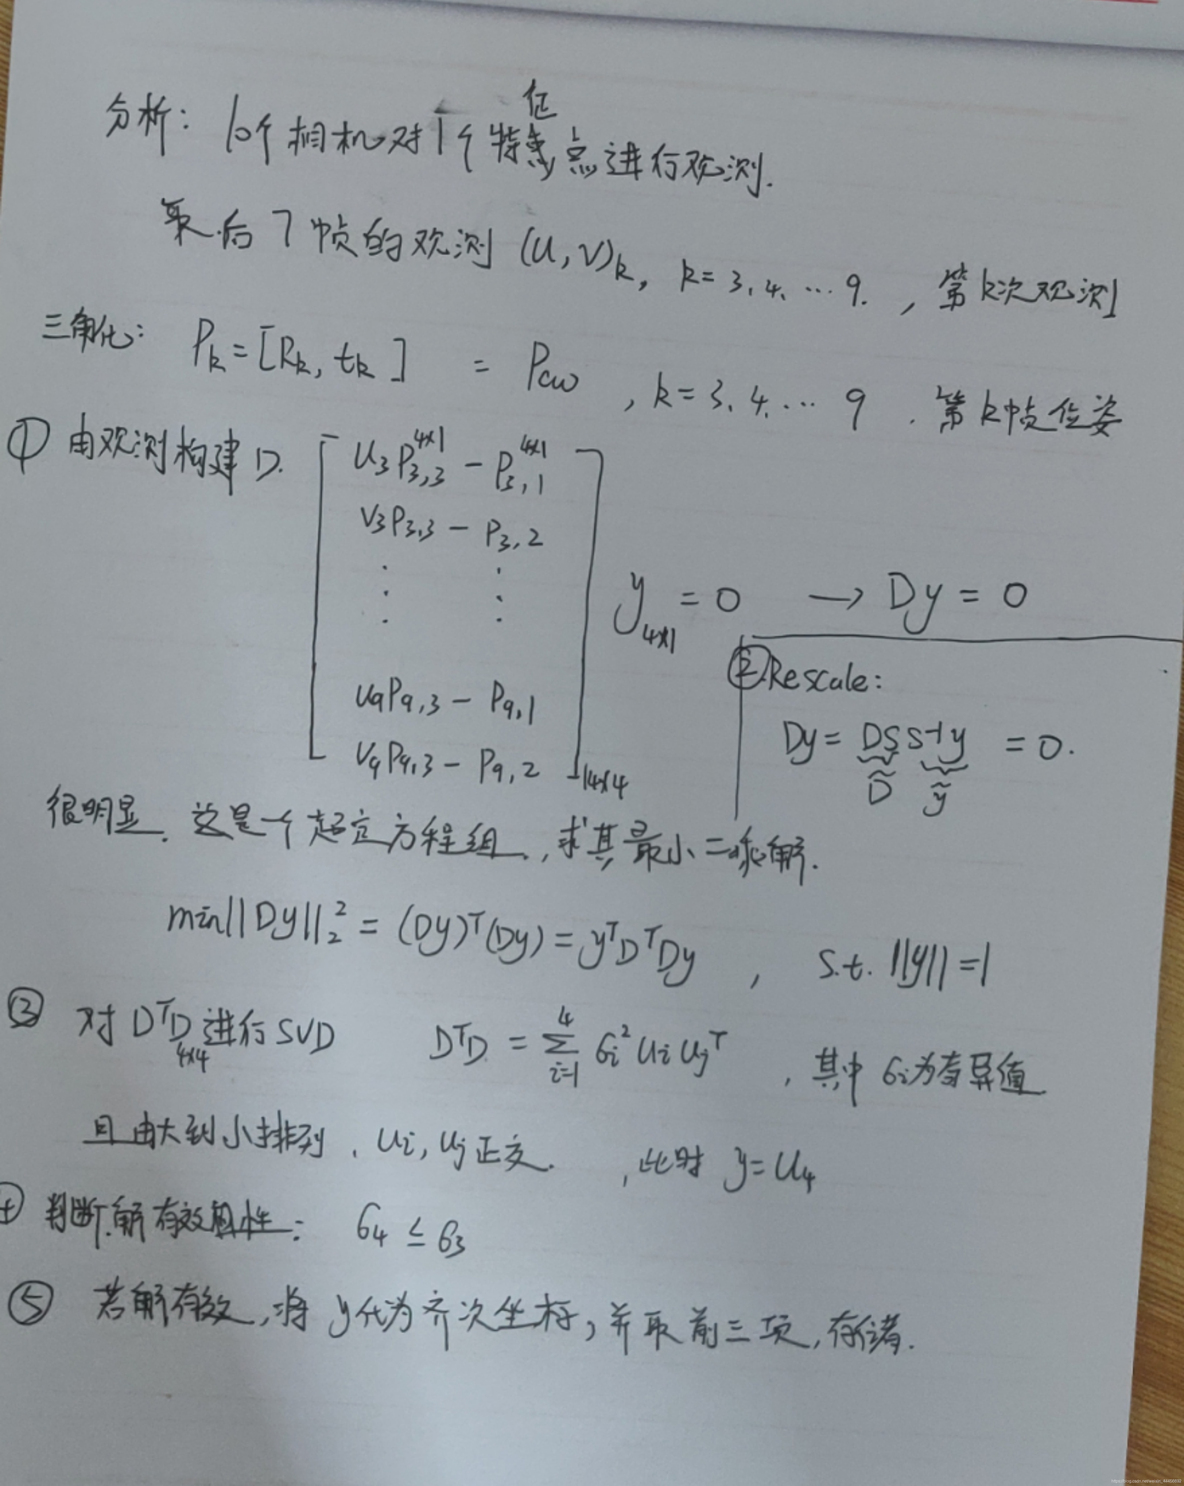 分析: 10个相机对1个特征点进行观测.
取后7帧的观测 (u,v)k, k=3.4. … 9. , 第k次观测
三角化: Pk=[Rk, tk] = Pcw , k=3.4. … 9 . 第k帧位姿
① 由观测构建D.
u3P3,3^4x1 - P3,1^4x1
v3P3,3 - P3,2
⋮ ⋮
u9P9,3 - P9,1
v9P9,3 - P9,2
14x4
y4x1 = 0 → Dy = 0
② Rescale:
Dy = DSS-1y = 0.
D̃ ỹ
很明显. 这是一个超定方程组, 求其最小二乘解.
min||Dy||₂² = (Dy)ᵀ(Dy) = yᵀDᵀDy , s.t. ||y||=1
③ 对DᵀD进行SVD DᵀD = Σ(i=1,4) σi² ui ujᵀ , 其中 σi为奇异值
4x4
且由大到小排列. ui, uj正交. , 此时 y=u4
④ 判断解有效性: σ4 ≤ σ3
⑤ 若解有效, 将 y化为齐次坐标, 并取前三项, 存储.